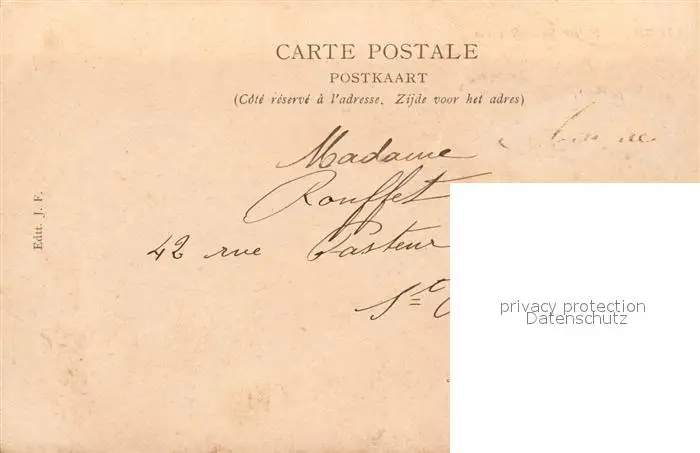 CARTE POSTALE
POSTKAART
(Côté réservé à l'adresse. Zijde voor het adres)
Madame
Rouffet
42 rue Pasteur
St
Edit. J. F.
privacy protection
Datenschutz